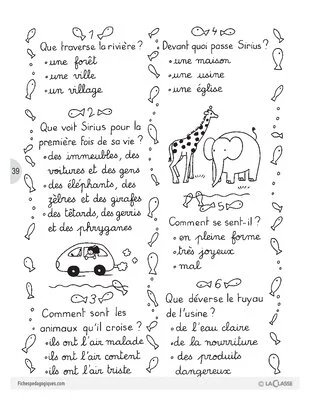 1
Que traverse la rivière ?
• une forêt
• une ville
• un village
2
Que voit Sirius pour la
première fois de sa vie ?
• des immeubles, des
voitures et des gens
• des éléphants, des
zèbres et des girafes
• des têtards, des gerris
et des phryganes
3
Comment sont les
animaux qu'il croise ?
• ils ont l'air malade
• ils ont l'air content
• ils ont l'air triste
4
Devant quoi passe Sirius ?
• une maison
• une usine
• une église
5
Comment se sent-il ?
• en pleine forme
• très joyeux
• mal
6
Que déverse le tuyau
de l'usine ?
• de l'eau claire
• de la nourriture
• des produits
dangereux
39
Fichespedagogiques.com
© LA CLASSE